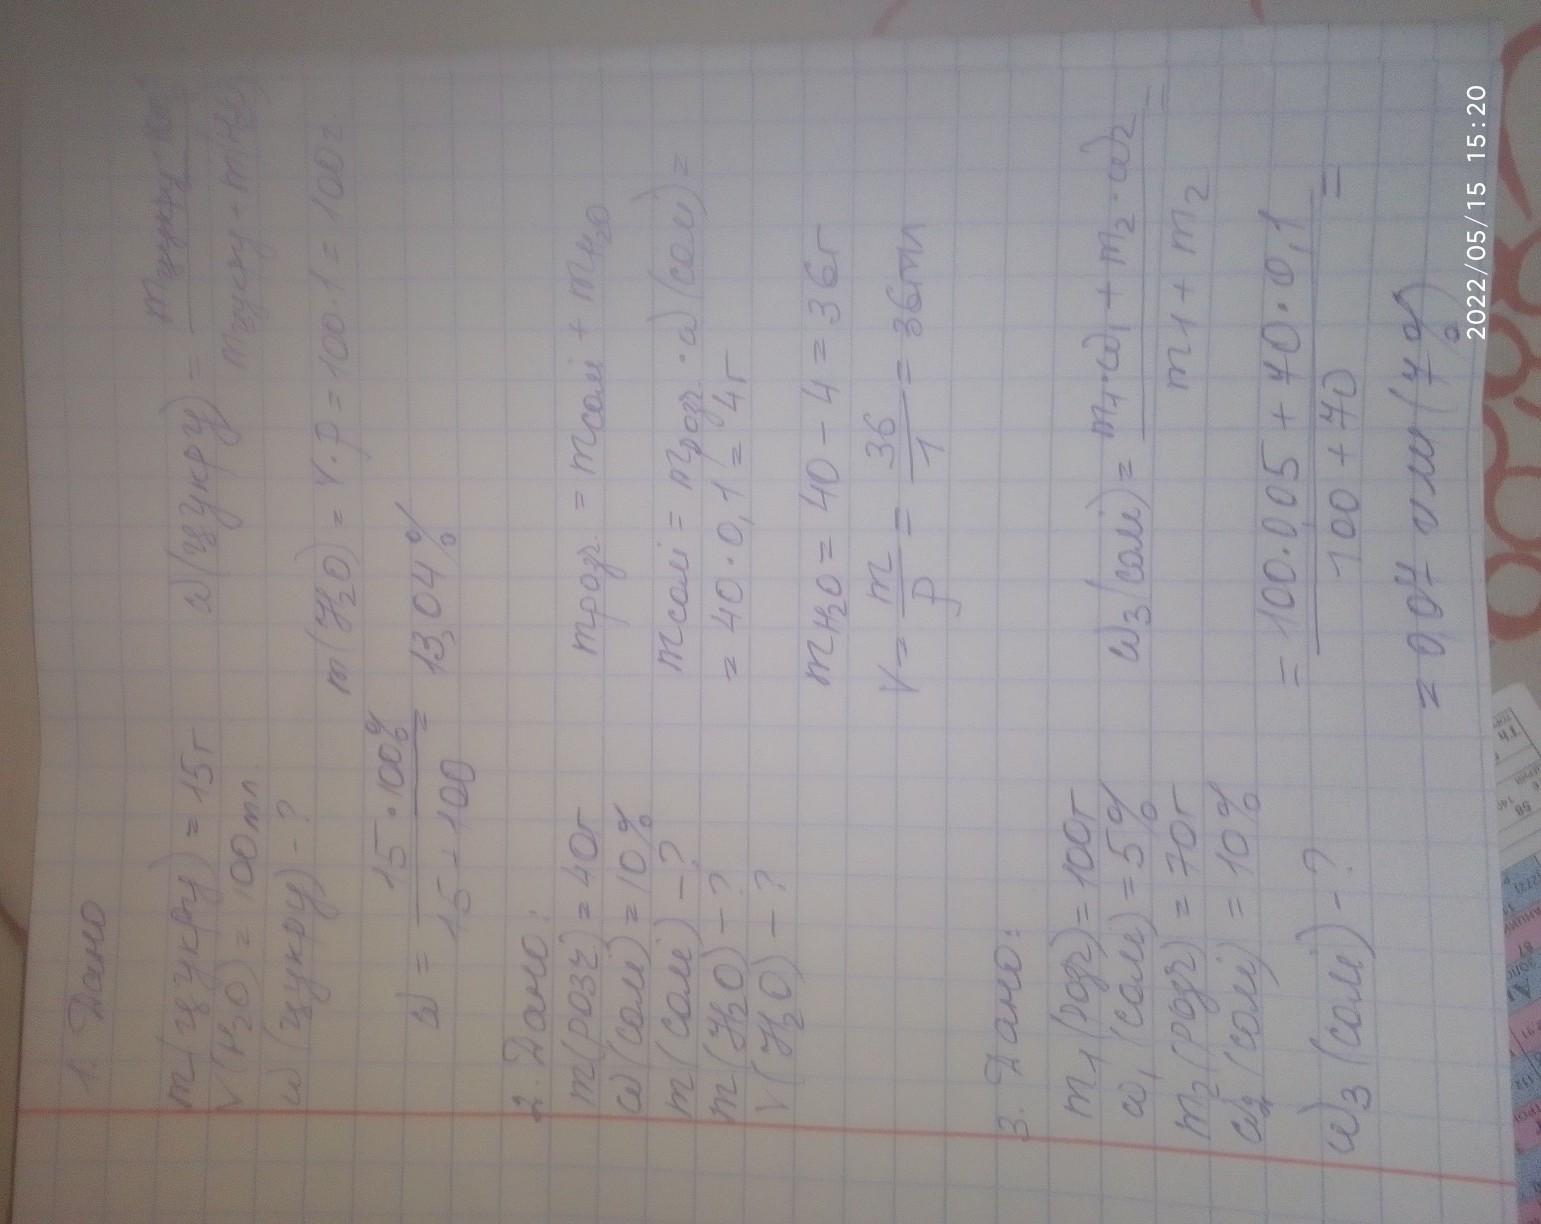 1. Дано
m(цукру) = 15г
V(H₂O) = 100мл
ω(цукру) - ?
ω(цукру) = mцукру / mцукру + mH₂
m(H₂O) = V · ρ = 100 · 1 = 100г
ω = 15 · 100% / 15 + 100 = 13,04%
2. Дано:
m(розч) = 40г
ω(солі) = 10%
m(солі) - ?
m(H₂O) - ?
V(H₂O) - ?
mрозч = mсолі + mH₂O
mсолі = mрозч · ω(солі) =
= 40 · 0,1 = 4г
mH₂O = 40 - 4 = 36г
V = m/ρ = 36/1 = 36мл
3. Дано:
m1(розч) = 100г
ω₁(солі) = 5%
m₂(розч) = 70г
ω₂(солі) = 10%
ω₃(солі) - ?
ω₃(солі) = m₁·ω₁ + m₂·ω₂ / m1 + m₂ =
= 100·0,05 + 70·0,1 / 100 + 70 =
= 0,07 или (7%)
2022/05/15 15:20